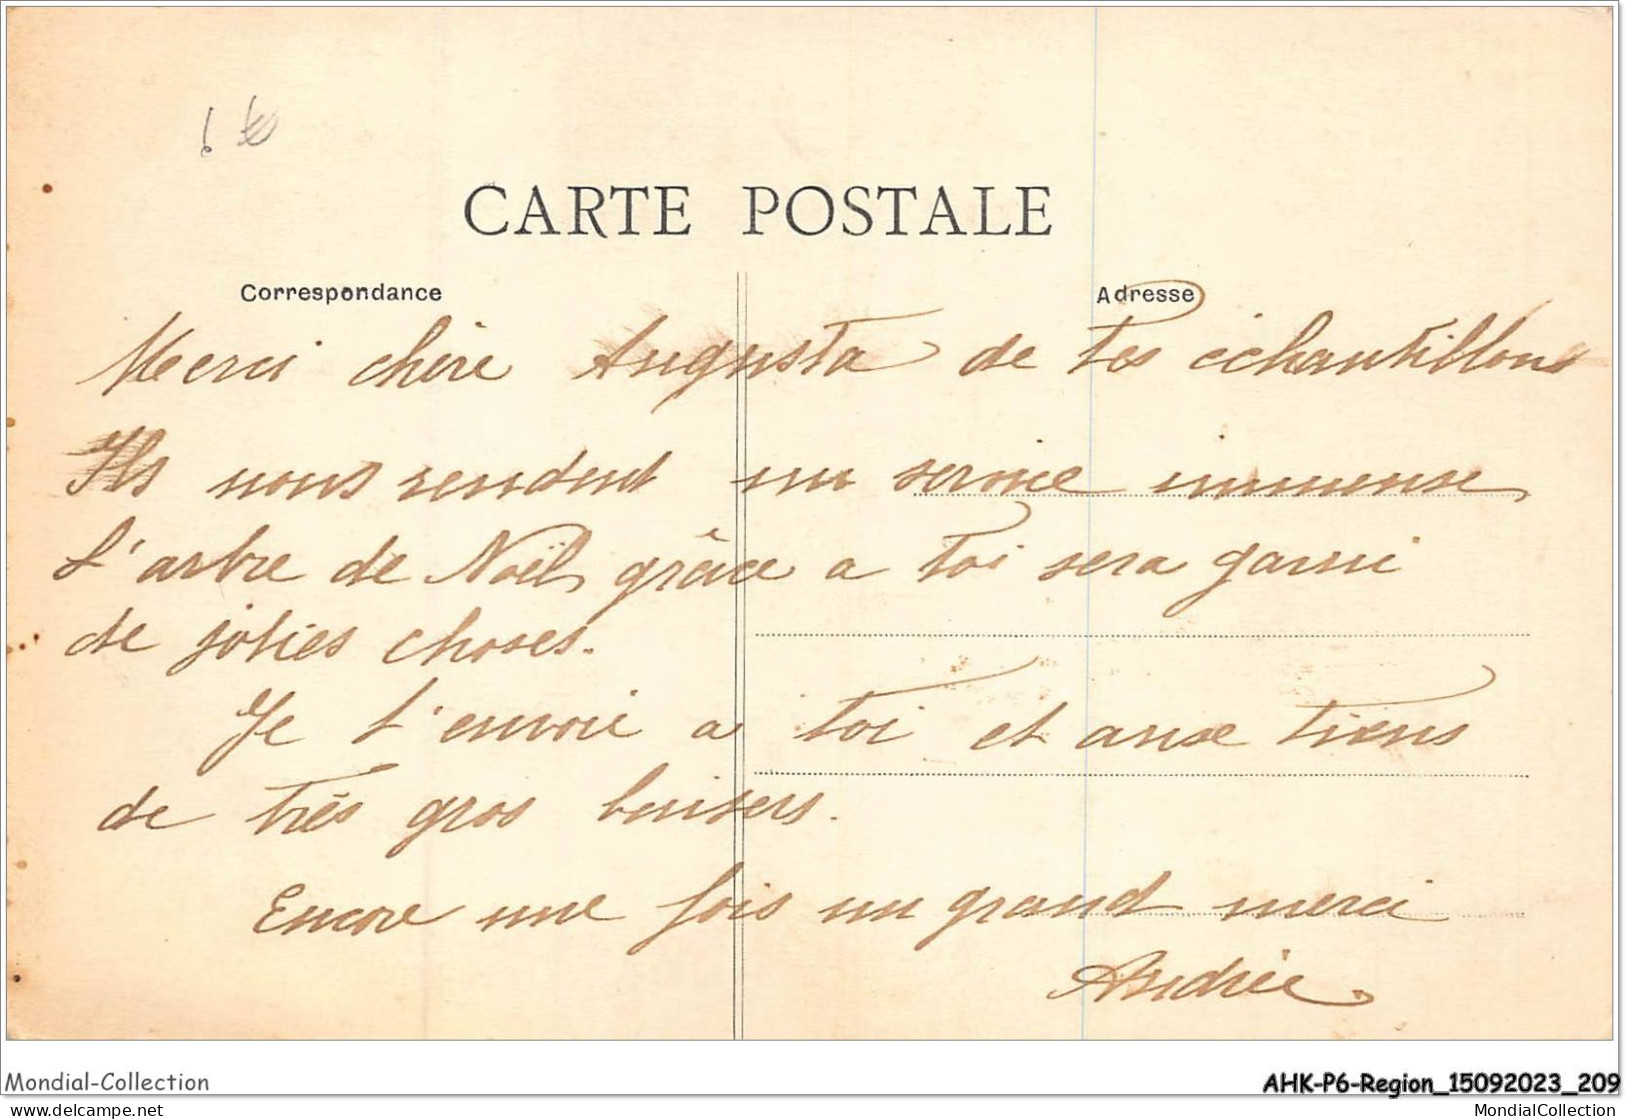 CARTE POSTALE
Correspondance
Adresse
Merci chère Augusta de tes échantillons
Ils nous rendent un service immense
L'arbre de Noël, grâce a toi sera garni
de jolies choses.
Je t'envoie a toi et aux tiens
de très gros baisers.
Encore une fois un grand merci
Andrée.
Mondial-Collection
AHK-P6-Region_15092023_209
www.delcampe.net
MondialCollection